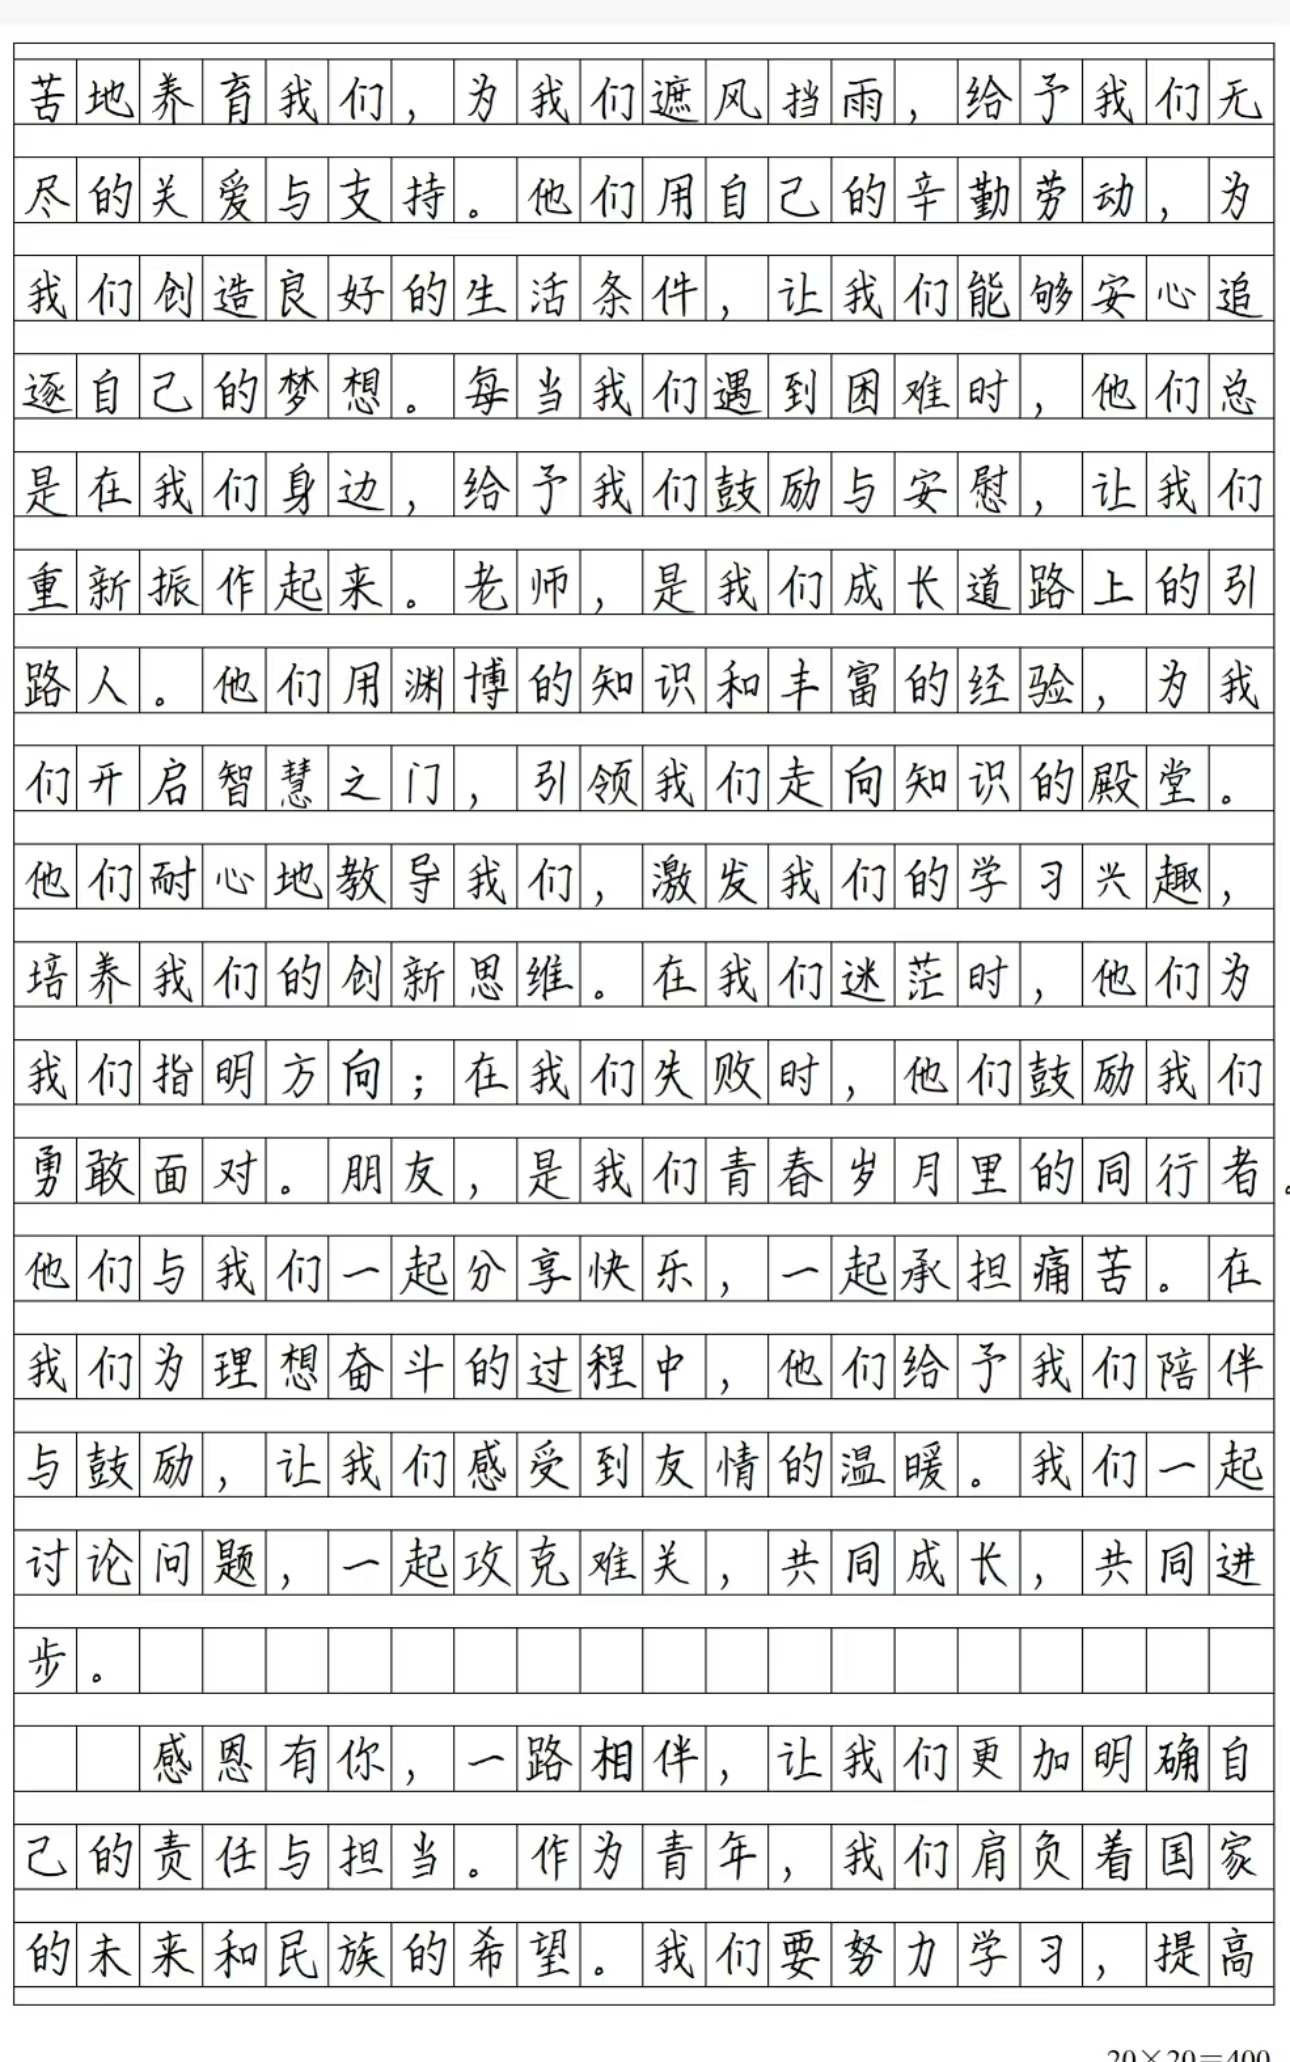 苦地养育我们，为我们遮风挡雨，给予我们无
尽的关爱与支持。他们用自己的辛勤劳动，为
我们创造良好的生活条件，让我们能够安心追
逐自己的梦想。每当我们遇到困难时，他们总
是在我们身边，给予我们鼓励与安慰，让我们
重新振作起来。老师，是我们成长道路上的引
路人。他们用渊博的知识和丰富的经验，为我
们开启智慧之门，引领我们走向知识的殿堂。
他们耐心地教导我们，激发我们的学习兴趣，
培养我们的创新思维。在我们迷茫时，他们为
我们指明方向；在我们失败时，他们鼓励我们
勇敢面对。朋友，是我们青春岁月里的同行者。
他们与我们一起分享快乐，一起承担痛苦。在
我们为理想奋斗的过程中，他们给予我们陪伴
与鼓励，让我们感受到友情的温暖。我们一起
讨论问题，一起攻克难关，共同成长，共同进
步。
感恩有你，一路相伴，让我们更加明确自
己的责任与担当。作为青年，我们肩负着国家
的未来和民族的希望。我们要努力学习，提高
20×20=400